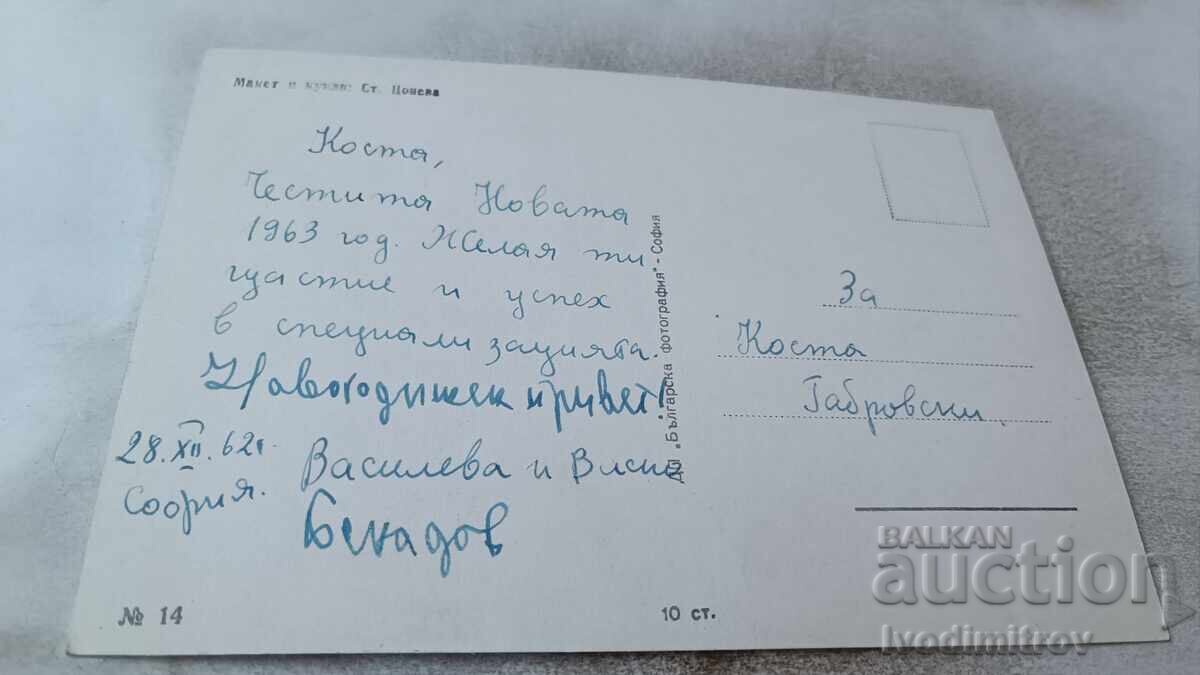 Макет и кукли: Ст. Цонева
Коста,
Честита Новата
1963 год. Желая ти
щастие и успех
в специализацията.
Новогодишен привет!
28.XII.62г.
София.
Василева и
№ 14
10 ст.
ДП „Българска фотография" - София
За
Коста
Габровски
BALKAN
auction
Ivodimitrov